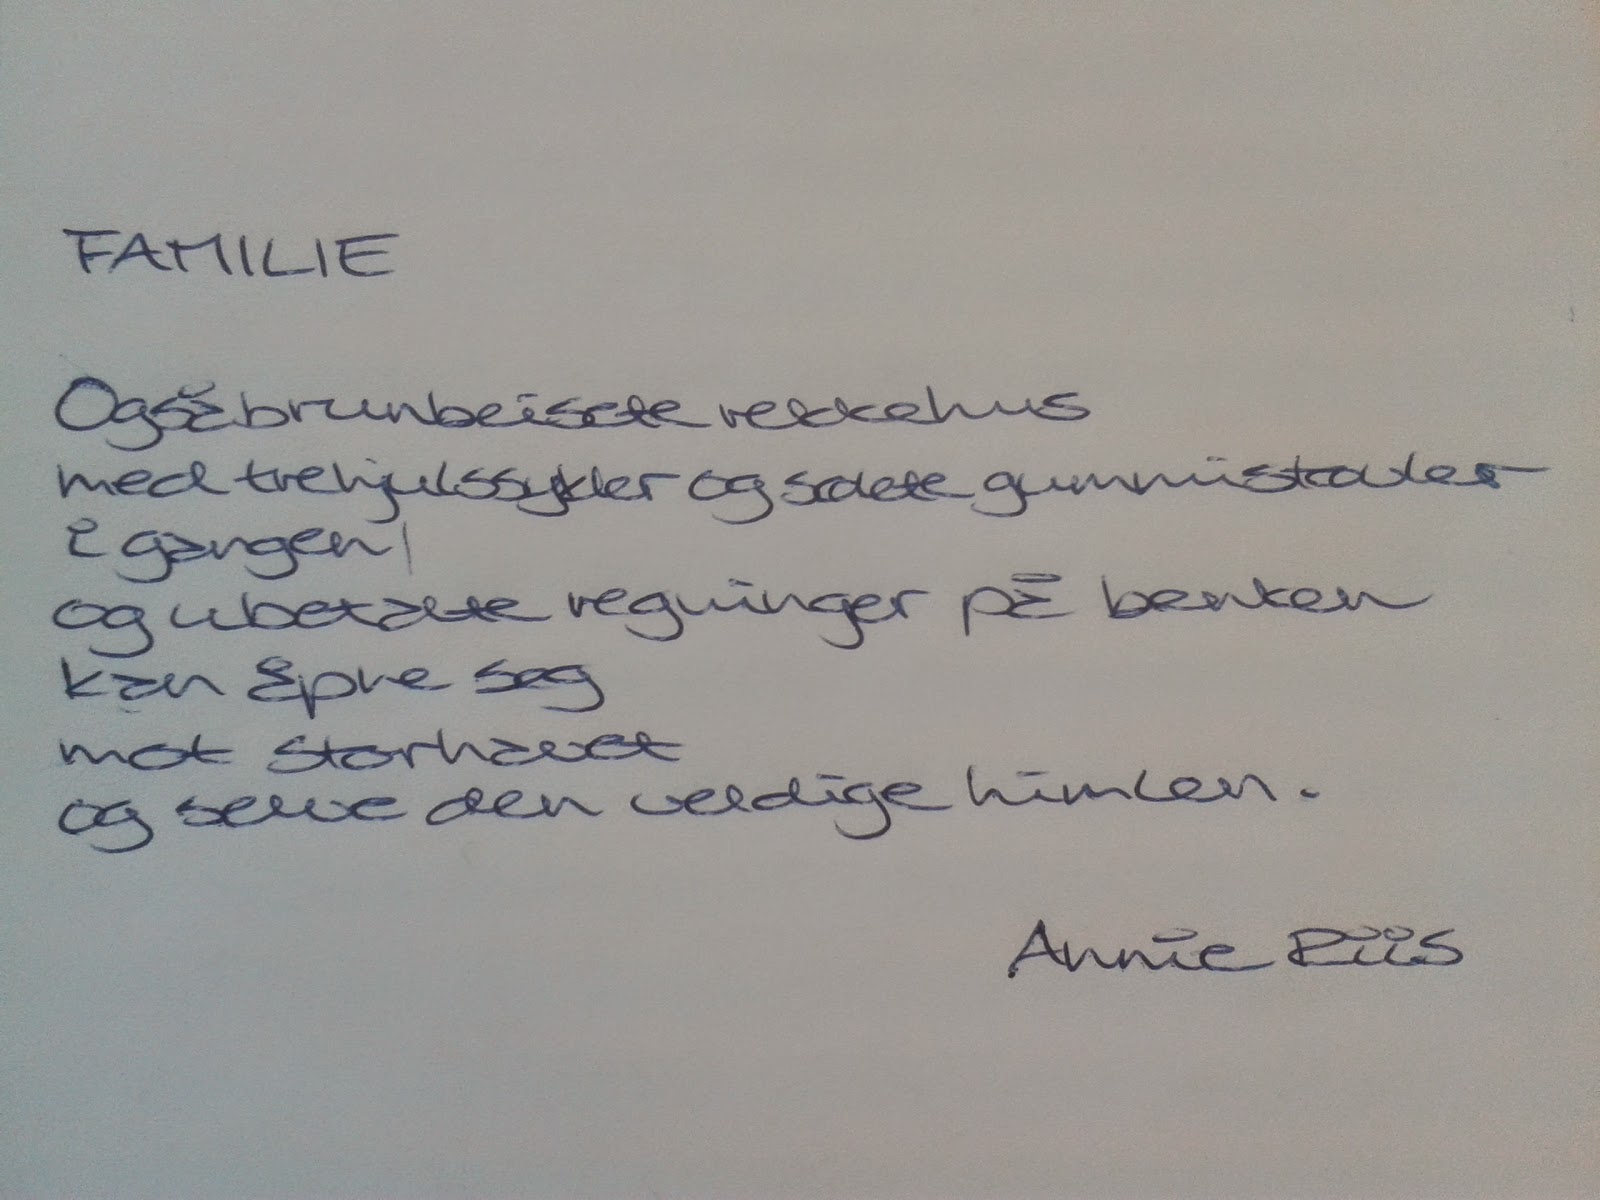 FAMILIE
Også brunbeisete rekkehus
med trehjulssykler og sølete gummistøvler
i gangen,
og ubetalte regninger på benken
kan åpne seg
mot storhavet
og selve den veldige himlen.
Annie Riis